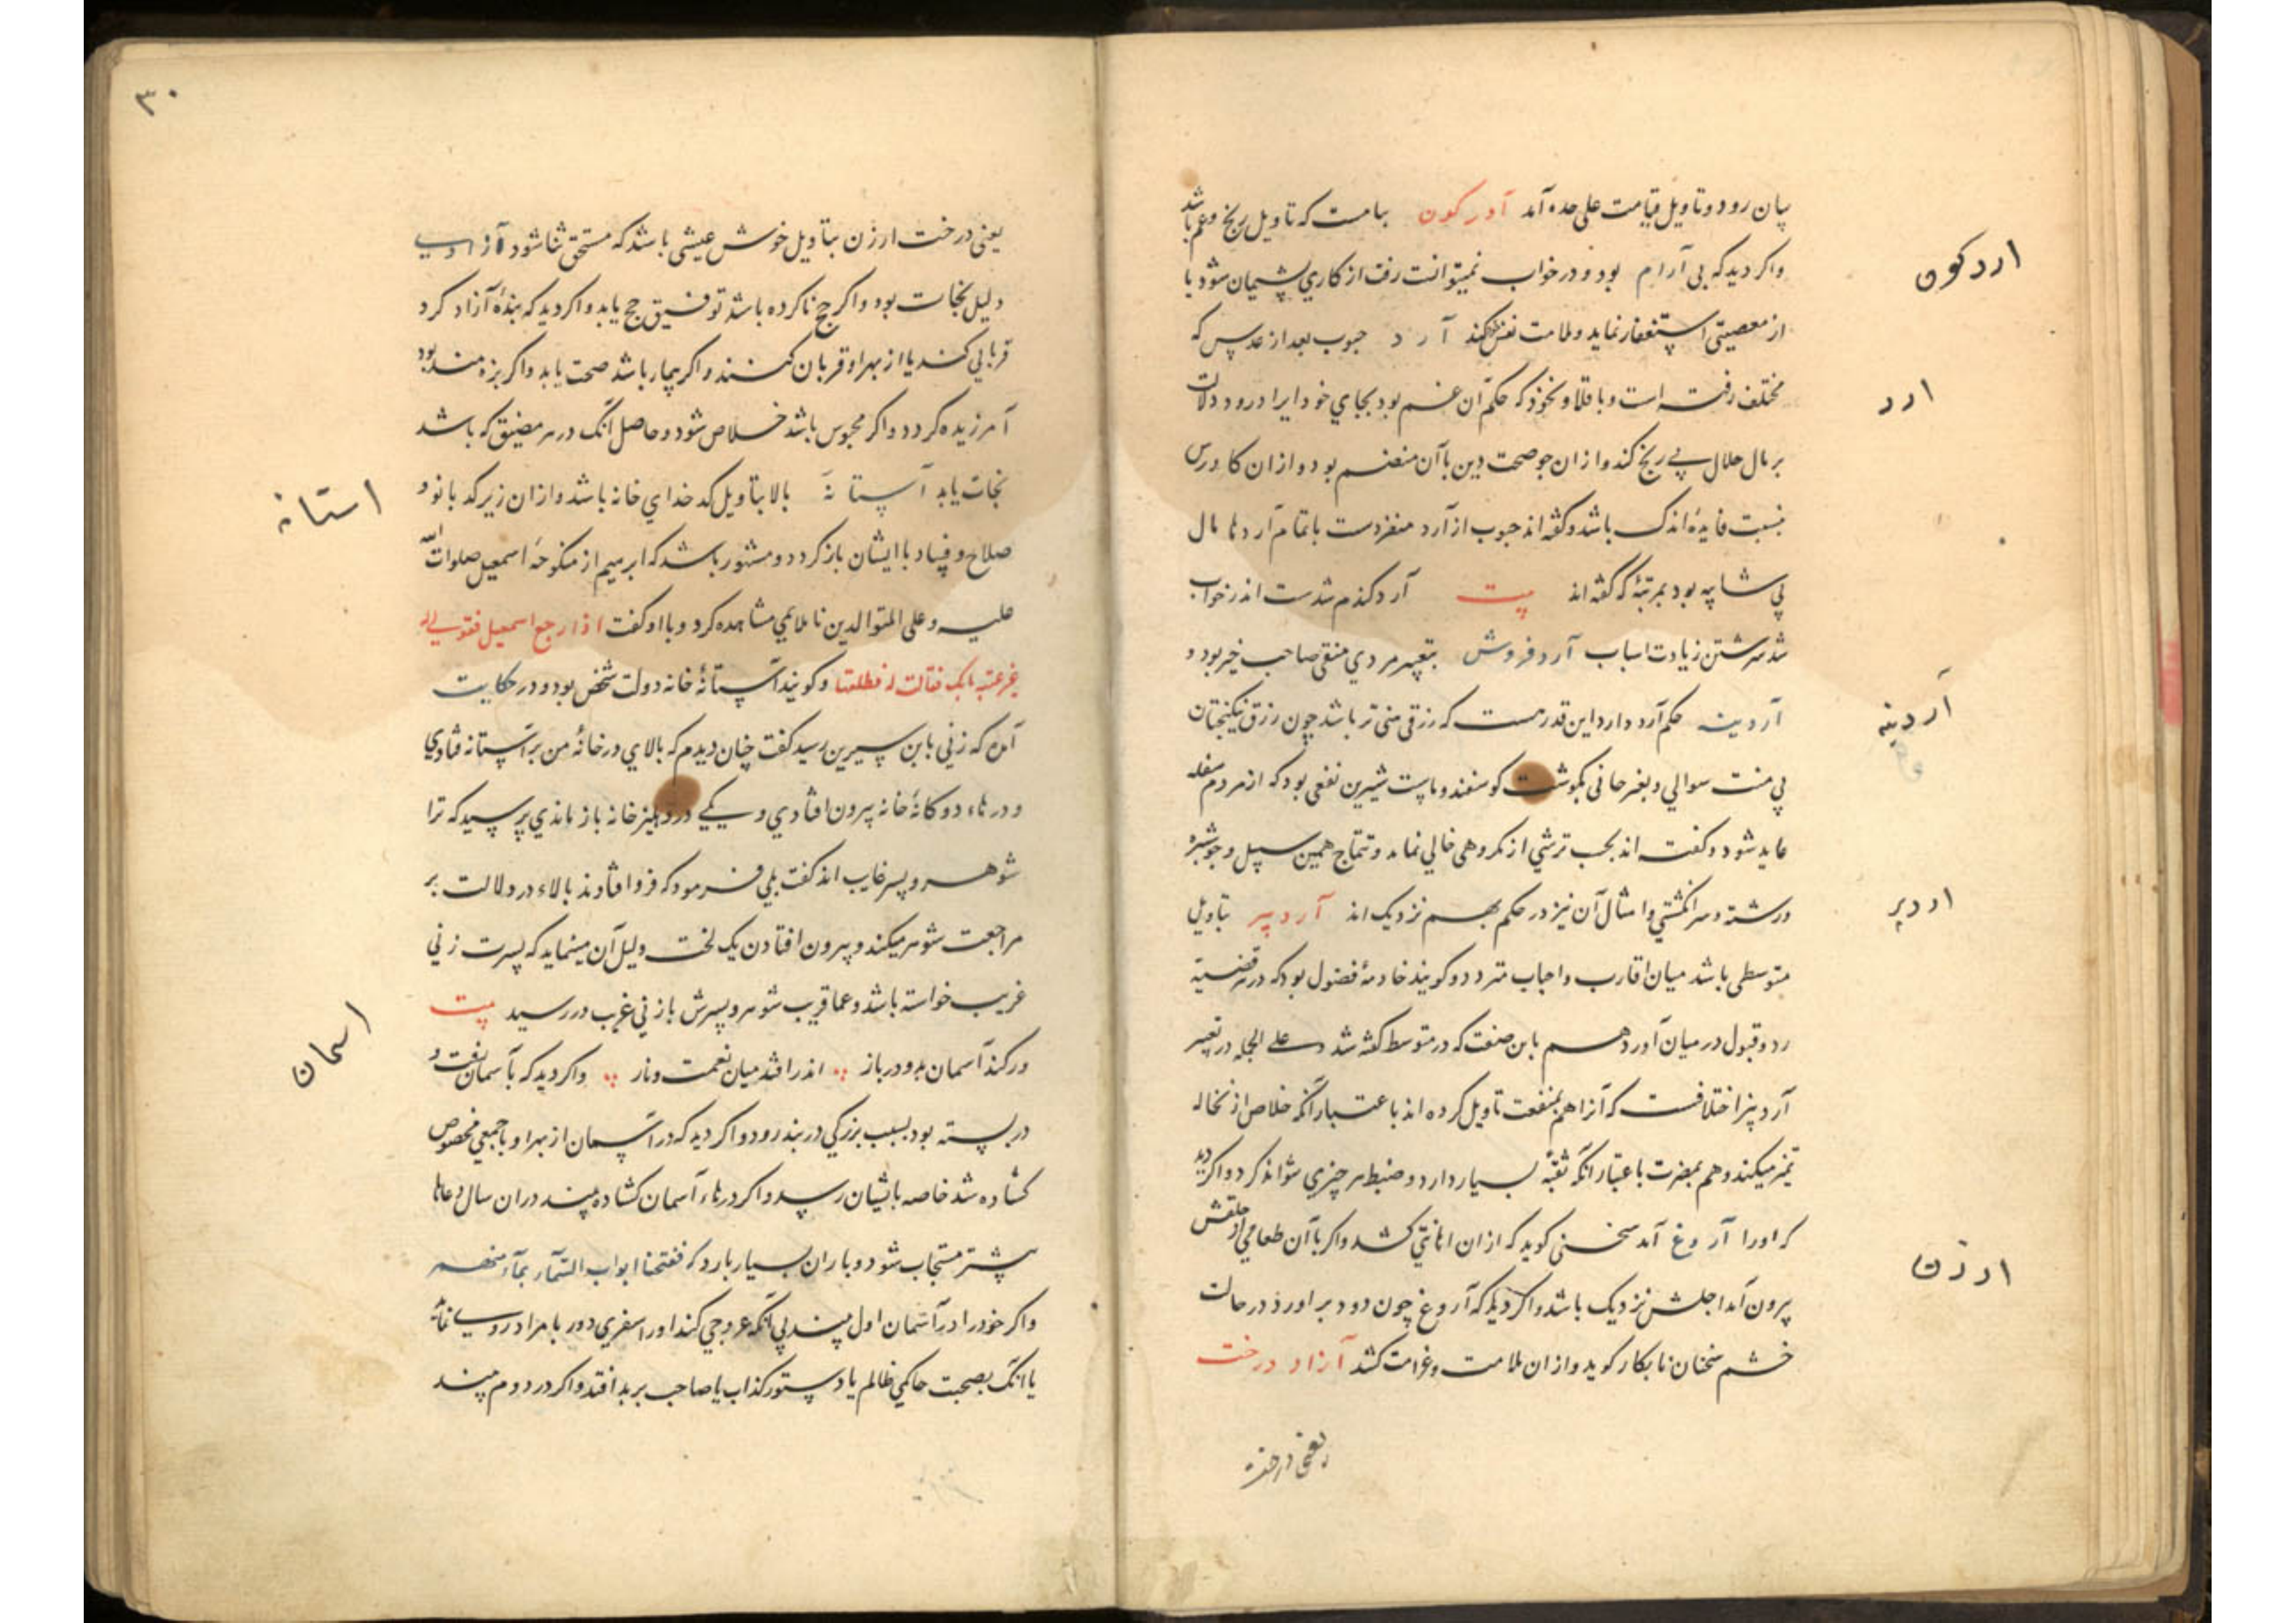 بیان رود و تاویل قیامت علی حده آمد آدرکون بیامست که تاویل رنج و غم باشد
واکر دید که بی آرام بود و در خواب نمیتوانست رفت از کاري پشیمان شود یا
از معصیتی استغفار نماید و ملامت نفس کند آرد حبوب بعد از عدس که
مختلف رفته است و باقلا و نخود که حکم آن غم بود بجاي خود ایراد رود دلالت
بر مال حلال بی رنج کند و از ان جو صحت دین باآن منضم بود و از ان کاورس
بنسبت فایدهٔ اندک باشد و کفته اند حبوب از آرد منفردست باتمام آردها مال
بی شایبه بود بمرتبهٔ که کفته اند بیت آرد کندم شدست اندر خواب
شد سرشتن زیادت اسباب آردفروش بتعبیر مردي متقی صاحب خیر بود و
آردینه حکم آرد دارد این قدر هست که رزقی منی تر باشد چون رزق نیکبختان
بی منت سوالي و بغرخانی بکوشت کوسفند و ماست شیرین نفعی بود که از مردم سفله
عاید شود و کفته اند بحسب ترشي از مکروهی خالي نماند و تتماج همین سبیل و جوشبره
و رشته و سرانکشتي و امثال آن نیز در حکم بهم نزدیک اند آردبیز بتاویل
متوسطی باشد میان اقارب و احباب متردد و کویند خادمهٔ فضول بود که در هر قضیه
رد و قبول در میان آورد هم باین صفت که در متوسط کفته شد و علی الجمله در تعبیر
آردبیز اختلافست که آنرا هم بمنفعت تاویل کرده اند باعتبار آنکه خلاص از نخاله
تمیز میکند و هم بمضرت باعتبار آنکه ثقبهٔ بسیار دارد و ضبط هر چیزي نتواند کرد واکر دید
که اورا آروغ آمد سخنی کوید که از ان اهانتي کشد واکر باآن طعامي از حلقش
بیرون آمد اجلش نزدیک باشد واکر دید که آروغ چون دود بر اورد در حالت
خشم سخنان نابکار کوید و از ان ملامت و غرامت کشد آزاد درخت
یعنی درخت
اردکون
ارد
آردینه
اردبر
ارزن
۳۰
یعنی درخت ارزن بتاویل خوش عیشی باشد که مستحق ثنا شود آزادي
دلیل نجات بود واکر حج ناکرده باشد توفیق حج یابد واکر دید که بندهٔ آزاد کرد
قرباني کند یا از بهر او قربان کنند واکر بیمار باشد صحت یابد واکر بزه مند بود
آمرزیده کردد واکر محبوس باشد خلاص شود و حاصل آنک در هر مضیق که باشد
نجات یابد آستانه بالا بتاویل کدخداي خانه باشد و از ان زیر کدبانو و
صلاح و فساد باایشان باز کردد و مشهور باشد که ابرهیم از منکوحهٔ اسمعیل صلوات الله
علیه و علی المتوالدین ناملایمي مشاهده کرد و بااو کفت اذا رجع اسمعیل فقولي له
غیر عتبة بابک فقالت له فطلقها و کویند آستانهٔ خانه دولت شخص بود و در حکایت
آمده که زني بابن سیرین رسید کفت چنان دیدم که بالاي در خانهٔ من بر آستانه فتادي
و درهاء دوکانهٔ خانه بیرون افتادي و یکي در دهلیز خانه باز ماندي پرسید که ترا
شوهر و پسر غایب اند کفت بلي فرمود که فرو افتاوند بالاء در دلالت بر
مراجعت شوهر میکند و بیرون افتادن یک لخت دلیل آن مینماید که پسرت زني
غریب خواسته باشد و عماقریب شوهر و پسرش بازني غریب در رسید بیت
ور کند آسمان بدو در باز اندر افتد میان نعمت و ناز واکر دید که بآسمان رفت و
در بسته بود بسبب بزرکي در بند رود واکر دید که در آسمان از بهر او باجمعي مخصوص
کشاده شد خاصه بایشان رسد واکر درهاء آسمان کشاده بیند در ان سال دعاها
بیشتر مستجاب شود و باران بسیار بارد که ففتحنا ابواب السماء بماء منهمر
واکر خود را در آسمان اول بیند بي آنکه عروجي کند اورا سفري دور بامراد روي نماید
یا آنک بصحبت حاکمي ظالم یا دستور کذاب یا صاحب بر بد افتد واکر در دوم بیند
استانه
اسمان